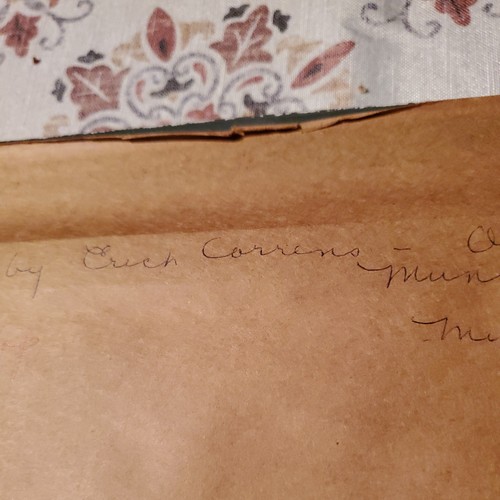 by Erich Correns - O
Mun
Me